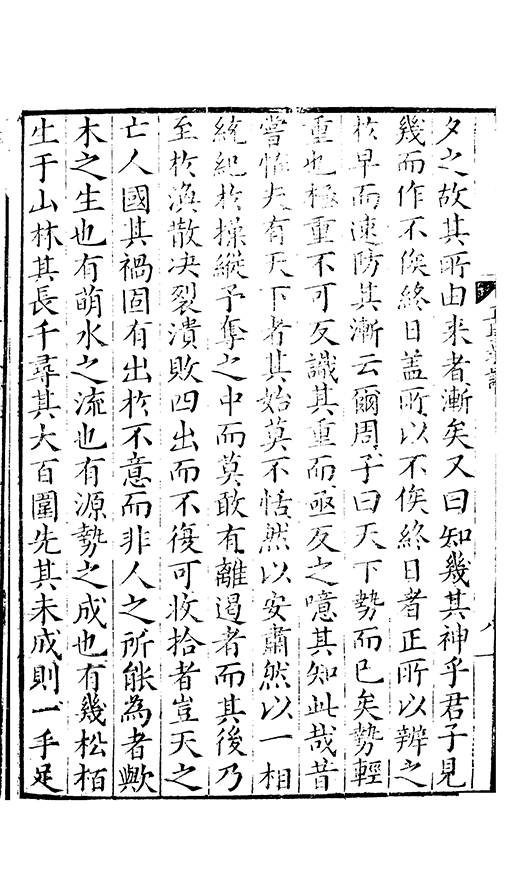 夕之故其所由来者漸矣又曰知幾其神乎君子見
幾而作不俟終日盖所以不俟終日者正所以辨之
於早而速防其漸云爾周子曰天下勢而已矣勢輕
重也極重不可反識其重而亟反之噫其知此哉昔
嘗恠夫有天下者其始莫不恬然以安肅然以一相
統紀於操縱予奪之中而莫敢有離逷者而其後乃
至於渙散决裂潰敗四出而不復可收拾者豈天之
亡人國其禍固有出於不意而非人之所能為者歟
木之生也有萌水之流也有源勢之成也有幾松栢
生于山林其長千尋其大百圍先其未成則一手足
八